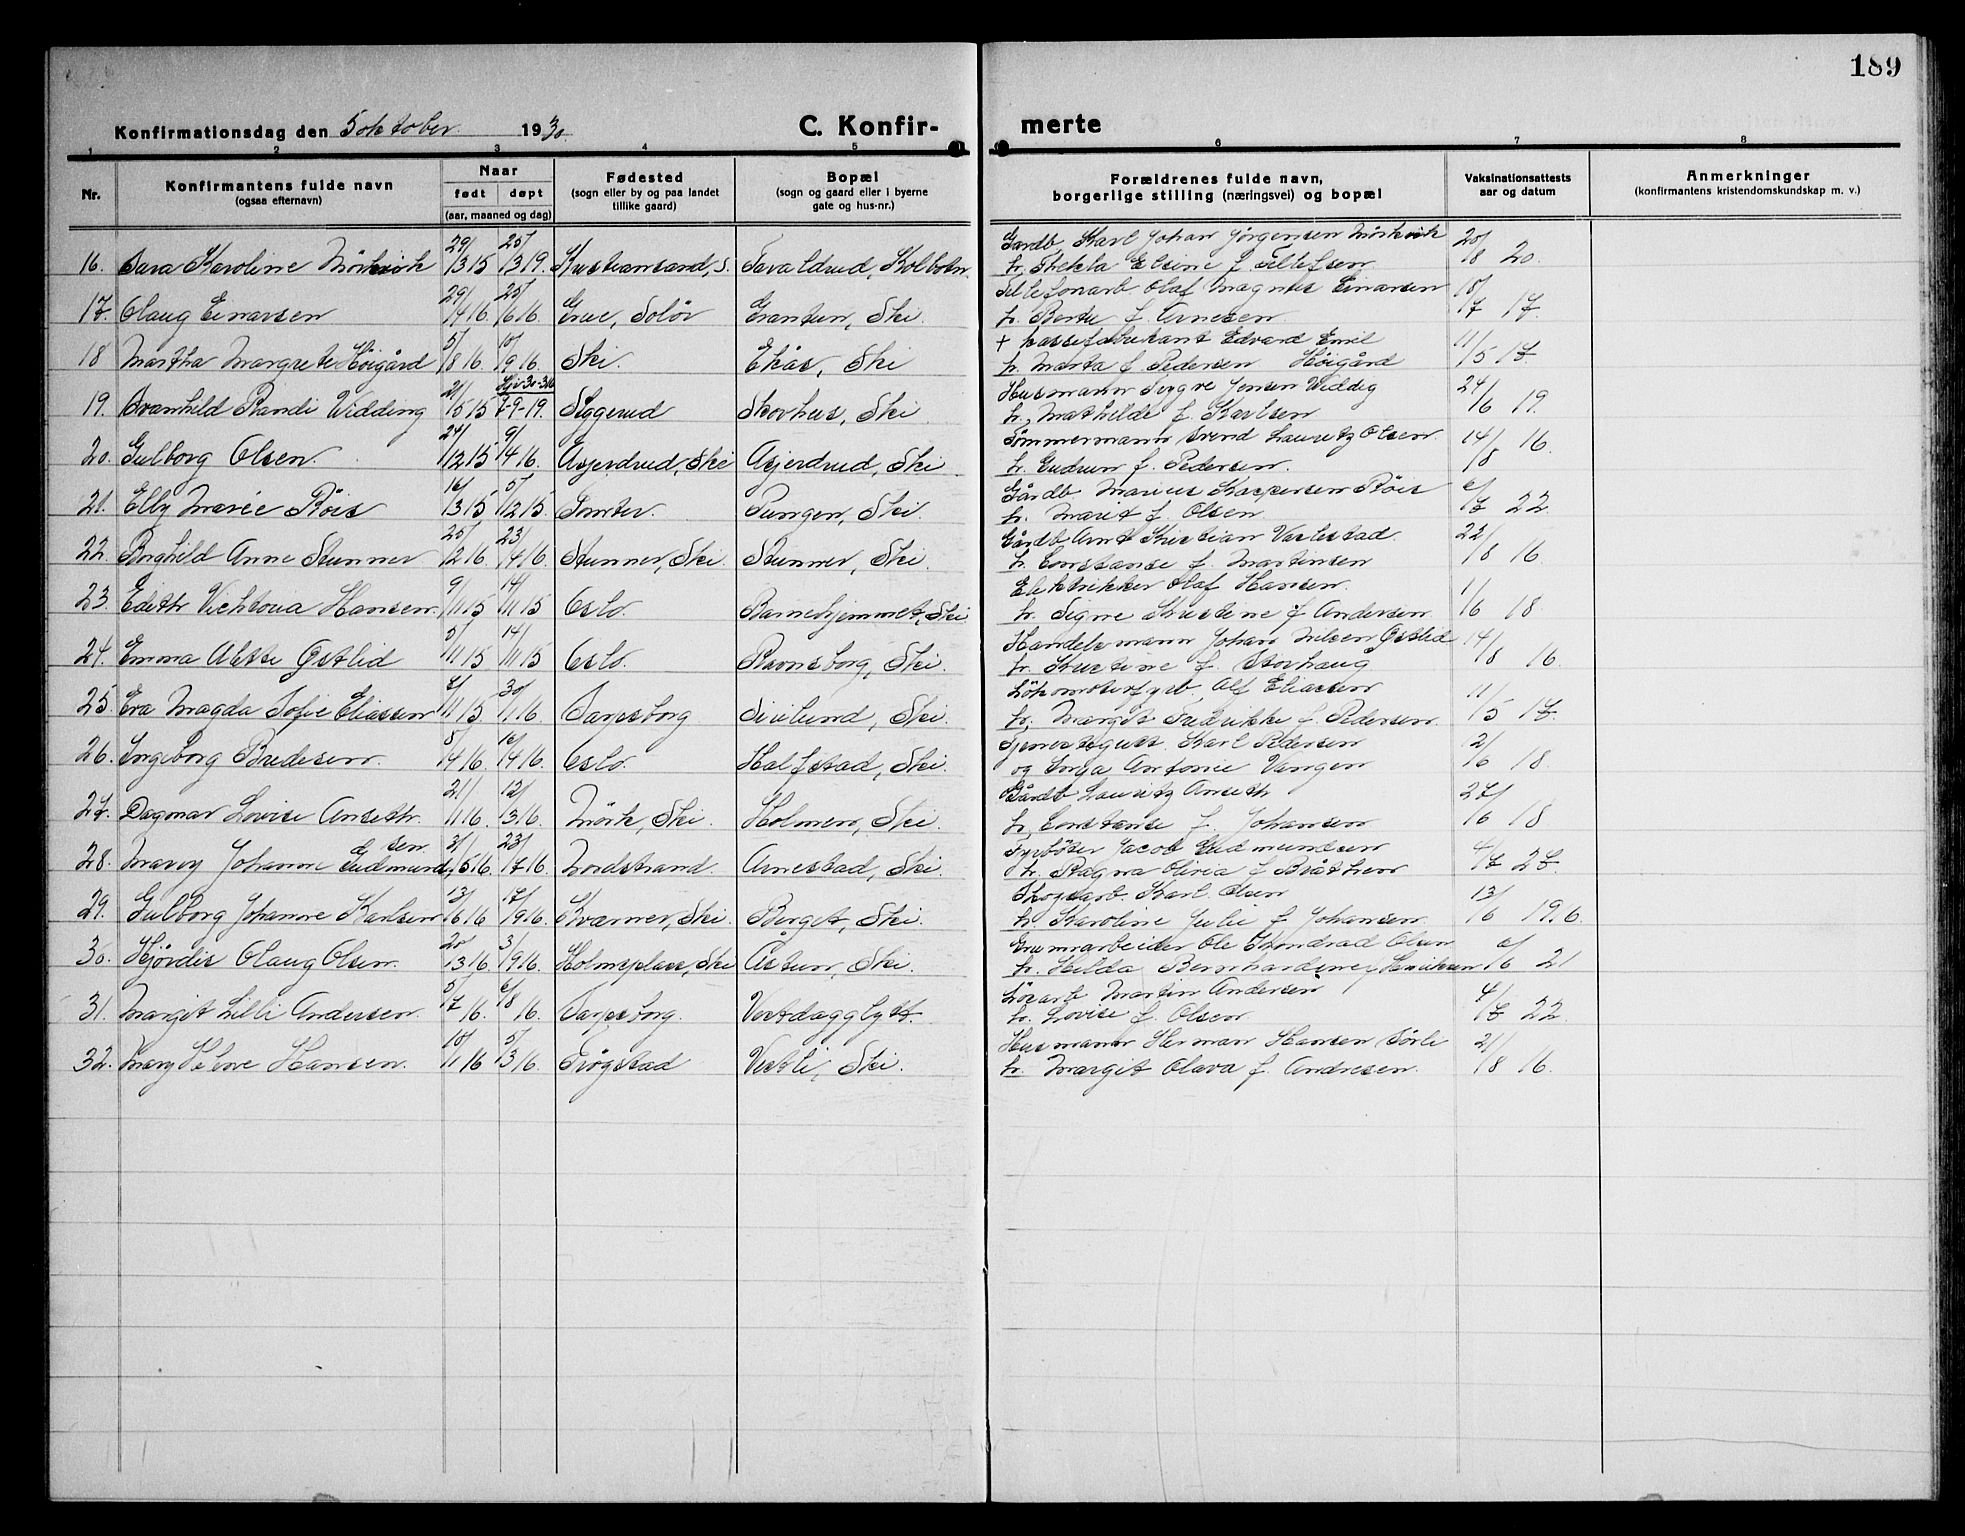 189
Konfirmationsdag den 5 oktober 1930.
C. Konfirmerte
1 2 3 4 5 6 7 8
Nr.
Konfirmantens fulde navn
(ogsaa efternavn)
Naar
født døpt
(aar, maaned og dag)
Fødested
(sogn eller by og paa landet
tillike gaard)
Bopæl
(sogn og gaard eller i byerne
gate og hus-nr.)
Forældrenes fulde navn,
borgerlige stilling (næringsvei) og bopæl
Vaksinationsattests
aar og datum
Anmerkninger
(konfirmantens kristendomskundskap m. v.)
16. Sara Karoline Mörkvik 29/3 15 25/3 19. Kristiansand, S. Taraldrud, Kolbotn Gardb. Karl Johan Jörgensen Mörkvik
h. Thekla Elsine f. Tellefsen 20/8 20.
17. Olaug Einarsen 29/4 16. 25/6 16. Grue, Solör Grantun, Ski. Telefonarb. Olaf Magnus Einarsen
h. Berte f. Arnesen 18/7 17.
18 Martha Margrete Höigård 5/8 16. 10/9 16. Ski. Ekås, Ski + kassefabrikant Edvard Emil
h. Marta f. Pedersen Höigård 11/5 17
19. Svanhild Randi Vidding 21/5 15 Hjd 30-3 16 7-9-19. Siggerud Skovhus, Ski Husmann Sigge Jensen Widdig
h. Mathilde f. Karlsen 24/6 19.
20. Gulborg Olsen. 24/12 15 9/4 16. Asjerdrud, Ski Asjerdrud, Ski Tömmermann Svend Lauritz Olsen.
h. Gudrun f. Pedersen. 14/8 16.
21. Elly Marie Röis 16/3 15 5/12 15. Tomter. Pungen, Ski. Gårdb. Marius Kaspersen Röis
h. Marit f. Olsen 6/7 22.
22. Borghild Anne Stunner 25/2 16. 23/4 16. Stunner, Ski. Stunner, Ski. Gårdb. Arnt Kristian Varlestad.
h. Constanse f. Martinsen 22/8 16.
23. Edith Vichtoria Hansen. 9/11 15 14/11 15 Oslo. Barnehjemmet, Ski Elektrikker Olaf Hansen.
h. Signe Kristine f Andersen. 1/6 18.
24. Emma Alette Östlid 5/11 15 14/11 15 Oslo. Ravnsborg, Ski. Handelsmann Johan Nilsen Östlid
h. Kristine f. Storhaug 14/8 16.
25. Eva Magda Sofie Eliassen 7/11 15 30/1 16 Sarpsborg Sivilund, Ski. Lökomotivfyrb. Alf Eliassen
h. Margit Fredrikke f. Pedersen. 11/5 17.
26. Ingeborg Bredesen. 8/4 16. 16/4 16. Oslo. Halfstad, Ski. Tjenestegutt. Karl Pedersen
og Inga Antonie Vangen 2/6 18.
27. Dagmar Lovise Anseth. 21/1 16 12/3 16 Mörk, Ski. Holmen, Ski. Gårdb. Lauritz Anseth
h. Constanse f. Johansen 27/6 18
28. Mary Johanne Gudmundsen 31/5 16. 23/7 16. Nordstrand. Arnestad, Ski. Fyrböter Jacob Gudmundsen
h. Ragna Olivia f Bråthen 4/7 27.
29. Gulborg Johanne Karlsen 13/6 16 17/9 16. Kværner, Ski. Berget, Ski. Skogsarb. Karl Olsen
h. Karoline Julie f Johansen. 13/6 19.6.
30. Hjördis Olaug Olsen. 20/3 16. 3/9 16. Holmsplass, Ski Åstun, Ski. Grunnarbeider Ole Kondrad Olsen
h. Hilda Bernhardine f Henriksen 6/6 21
31. Margit Lilli Andersen. 5/7 16. 6/8 16. Sarpsborg. Vestdagglytt. Lösarb Martin Andersen
h. Lovise f. Olsen 4/7 22.
32. Mary Helene Hansen. 10/1 16 5/3 16. Trögstad Vestli, Ski. Husmann Herman Hansen Sörli
h. Margit Olava f. Andresen. 21/8 16.